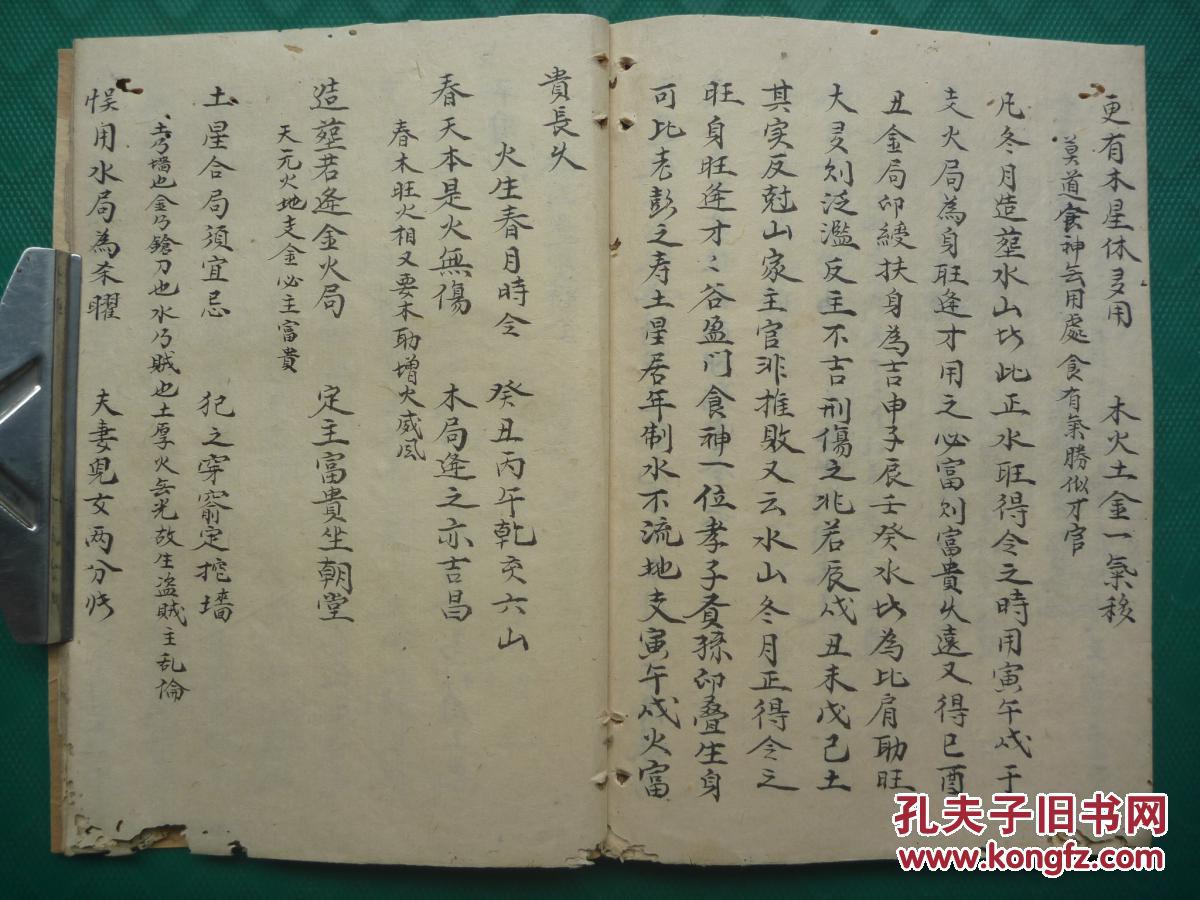 更有木星休多用 木火土金一氣移
莫道食神無用處食有氣勝似才官
凡冬月造塋水山皆此正水旺得令之時用寅午戌于
支火局為身旺逢才用之必富则富貴久遠又得巳酉
丑金局卬綬扶身為吉申子辰壬癸水皆為比肩助旺
大多则泛濫反主不吉刑傷之兆若辰戌丑未戊己土
其实反尅山家主官非推敗又云水山冬月正得令之
旺身旺逢才之谷盈门食神一位孝子賢孫卬叠生身
可比老彭之寿土星居年制水不流地支寅午戌火富
貴長久
火生春月時令 癸丑丙午乾亥六山
春天本是火無傷 木局逢之亦吉昌
春木旺火相又要木助增火威风
造塋若逢金火局 定主富貴坐朝堂
天元火地支金必主富貴
土星合局須宜忌 犯之穿窬定挖墙
土乃墻也金乃鎗刀也水乃贼也土厚火無光故生盜贼主乱倫
悮用水局為杀曜 夫妻兒女两分张
孔夫子旧书网
www.kongfz.com